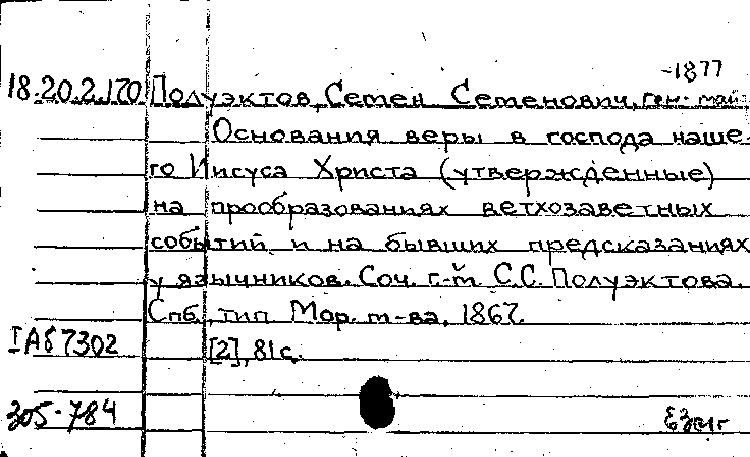 -1877
18.20.2.170 Полуэктов, Семен Семенович, ген.-май.
Основания веры в господа наше-
го Иисуса Христа (утвержденные)
на прообразованиях ветхозаветных
событий и на бывших предсказаниях
у язычников. Соч. г.-м. С.С. Полуэктова.
Спб., тип. Мор. м-ва, 1867.
IАб7302 [2], 81с.
305-784